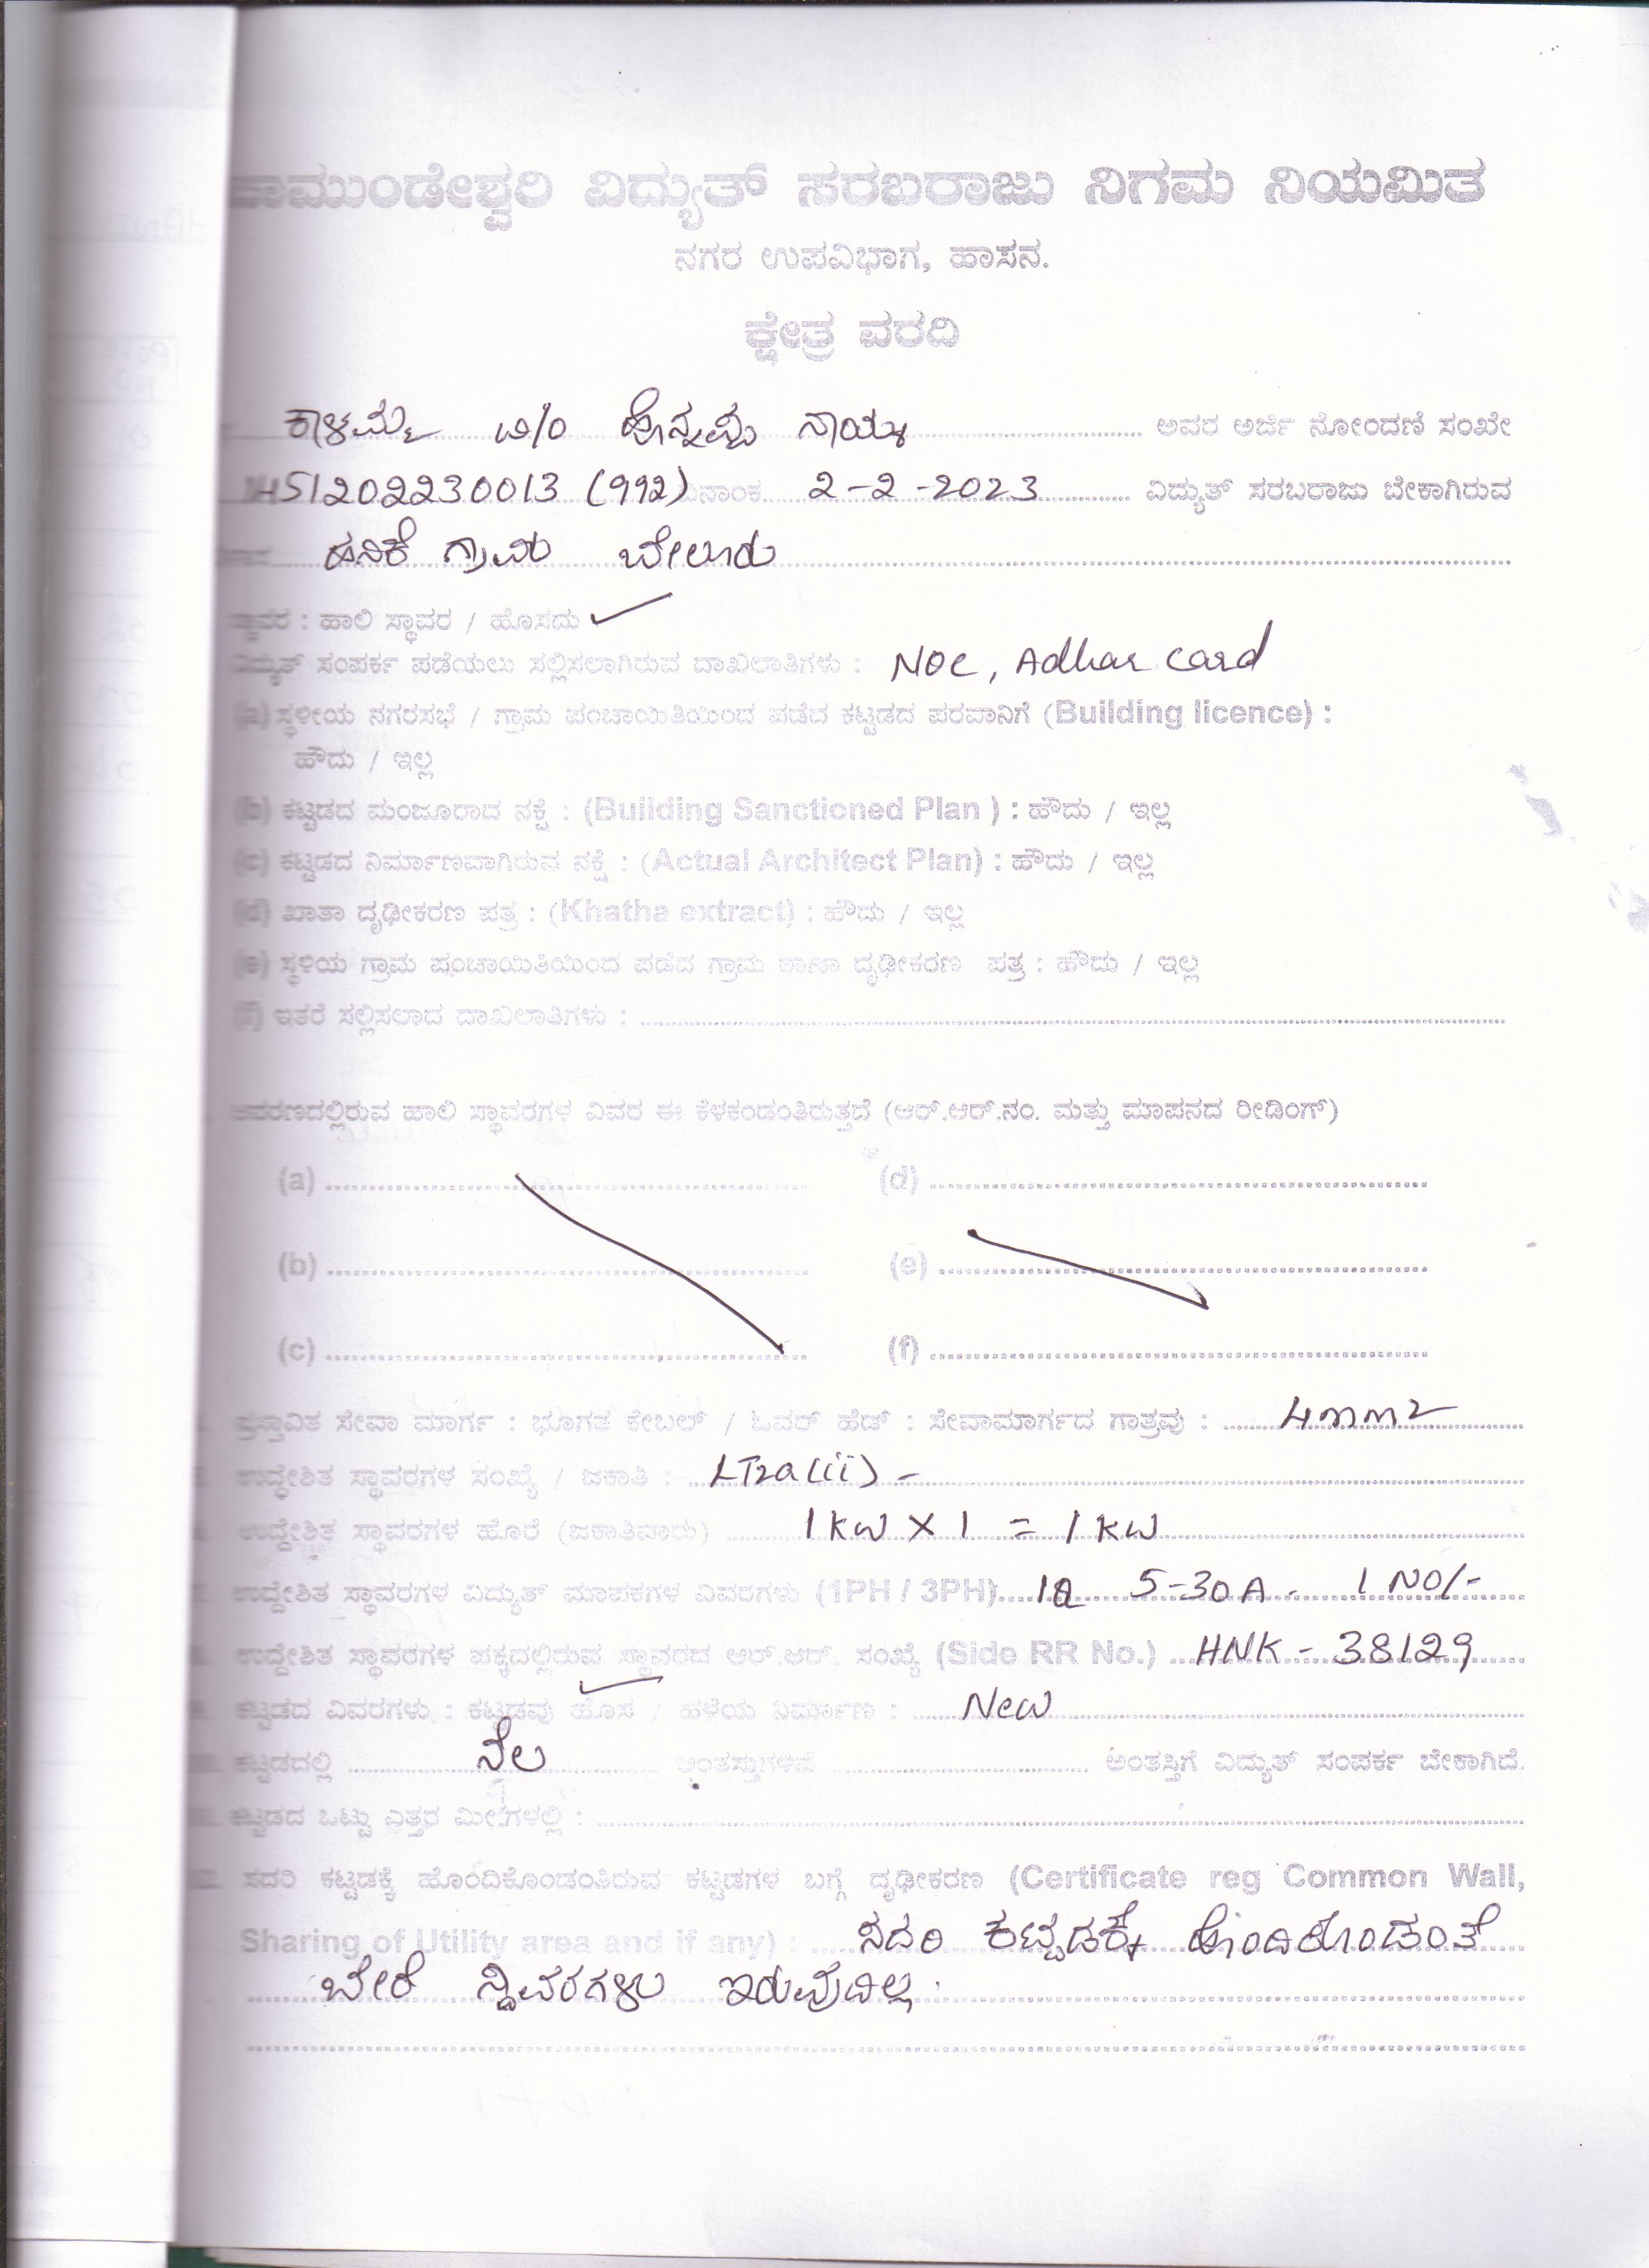 ಚಾಮುಂಡೇಶ್ವರಿ ವಿದ್ಯುತ್ ಸರಬರಾಜು ನಿಗಮ ನಿಯಮಿತ
ನಗರ ಉಪವಿಭಾಗ, ಹಾಸನ.
ಕ್ಷೇತ್ರ ವರದಿ
ಕಾಳಮ್ಮ ನಾಯ್ಕ ಅವರ ಅರ್ಜಿ ನೋಂದಣಿ ಸಂಖೇ
HS1202230013 (992) ದಿನಾಂಕ 2-2-2023 ವಿದ್ಯುತ್ ಸರಬರಾಜು ಬೇಕಾಗಿರುವ
ಗ್ರಾಮ ಬೇಲೂರು
ಸ್ಥಾವರ : ಹಾಲಿ ಸ್ಥಾವರ / ಹೊಸದು
ವಿದ್ಯುತ್ ಸಂಪರ್ಕ ಪಡೆಯಲು ಸಲ್ಲಿಸಲಾಗಿರುವ ದಾಖಲಾತಿಗಳು : NOC, Adhar card
(a) ಸ್ಥಳೀಯ ನಗರಸಭೆ / ಗ್ರಾಮ ಪಂಚಾಯಿತಿಯಿಂದ ಪಡೆದ ಕಟ್ಟಡದ ಪರವಾನಿಗೆ (Building licence) :
ಹೌದು / ಇಲ್ಲ
(b) ಕಟ್ಟಡದ ಮಂಜೂರಾದ ನಕ್ಷೆ : (Building Sanctioned Plan ) : ಹೌದು / ಇಲ್ಲ
(c) ಕಟ್ಟಡದ ನಿರ್ಮಾಣವಾಗಿರುವ ನಕ್ಷೆ : (Actual Architect Plan) : ಹೌದು / ಇಲ್ಲ
(d) ಖಾತಾ ದೃಢೀಕರಣ ಪತ್ರ : (Khatha extract) : ಹೌದು / ಇಲ್ಲ
(e) ಸ್ಥಳಿಯ ಗ್ರಾಮ ಪಂಚಾಯಿತಿಯಿಂದ ಪಡೆದ ಗ್ರಾಮ ಠಾಣಾ ದೃಢೀಕರಣ ಪತ್ರ : ಹೌದು / ಇಲ್ಲ
(f) ಇತರೆ ಸಲ್ಲಿಸಲಾದ ದಾಖಲಾತಿಗಳು :
ಆವರಣದಲ್ಲಿರುವ ಹಾಲಿ ಸ್ಥಾವರಗಳ ವಿವರ ಈ ಕೆಳಕಂಡಂತಿರುತ್ತದೆ (ಆರ್.ಆರ್.ನಂ. ಮತ್ತು ಮಾಪನದ ರೀಡಿಂಗ್)
(a) (d)
(b) (e)
(c) (f)
ಪ್ರಸ್ತಾವಿತ ಸೇವಾ ಮಾರ್ಗ : ಭೂಗತ ಕೇಬಲ್ / ಓವರ್ ಹೆಡ್ : ಸೇವಾಮಾರ್ಗದ ಗಾತ್ರವು : 4mm2
ಉದ್ದೇಶಿತ ಸ್ಥಾವರಗಳ ಸಂಖ್ಯೆ / ಜಕಾತಿ : LT2a(ii) -
ಉದ್ದೇಶಿತ ಸ್ಥಾವರಗಳ ಹೊರೆ (ಜಕಾತಿವಾರು) 1KW X 1 = 1KW
ಉದ್ದೇಶಿತ ಸ್ಥಾವರಗಳ ವಿದ್ಯುತ್ ಮಾಪಕಗಳ ವಿವರಗಳು (1PH / 3PH) 5-30A - 1 NO/-
ಉದ್ದೇಶಿತ ಸ್ಥಾವರಗಳ ಪಕ್ಕದಲ್ಲಿರುವ ಸ್ಥಾವರದ ಆರ್.ಆರ್. ಸಂಖ್ಯೆ (Side RR No.) HNK - 38129
ಕಟ್ಟಡದ ವಿವರಗಳು : ಕಟ್ಟಡವು ಹೊಸ / ಹಳೆಯ ನಿರ್ಮಾಣ : New
ಕಟ್ಟಡದಲ್ಲಿ ನೆಲ ಅಂತಸ್ತುಗಳಿವೆ ಅಂತಸ್ತಿಗೆ ವಿದ್ಯುತ್ ಸಂಪರ್ಕ ಬೇಕಾಗಿದೆ.
ಕಟ್ಟಡದ ಒಟ್ಟು ಎತ್ತರ ಮೀ.ಗಳಲ್ಲಿ :
ಸದರಿ ಕಟ್ಟಡಕ್ಕೆ ಹೊಂದಿಕೊಂಡಂತಿರುವ ಕಟ್ಟಡಗಳ ಬಗ್ಗೆ ದೃಢೀಕರಣ (Certificate reg Common Wall,
Sharing of Utility area and if any) : ಸದರಿ ಕಟ್ಟಡಕ್ಕೆ ಹೊಂದಿಕೊಂಡಂತೆ
ಬೇರೆ ಸ್ಥಾವರಗಳು ಇರುವುದಿಲ್ಲ.